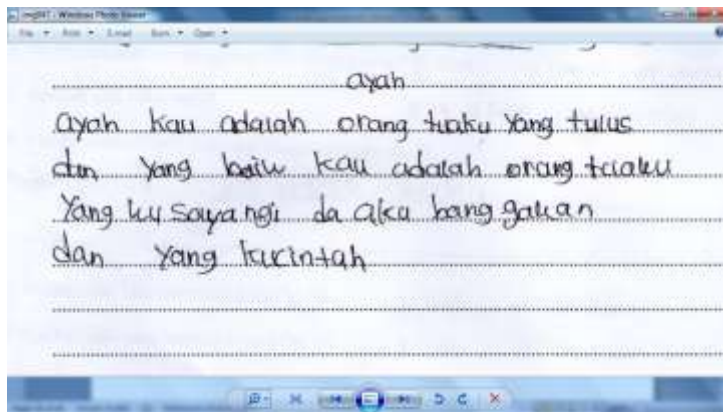 img047 - Windows Photo Viewer
File Print E-mail Burn Open
ayah
ayah kau adalah orang tuaku yang tulus
dan yang baik kau adalah orang tuaku
Yang ku sayangi da aku bang gakan
dan yang kucintah